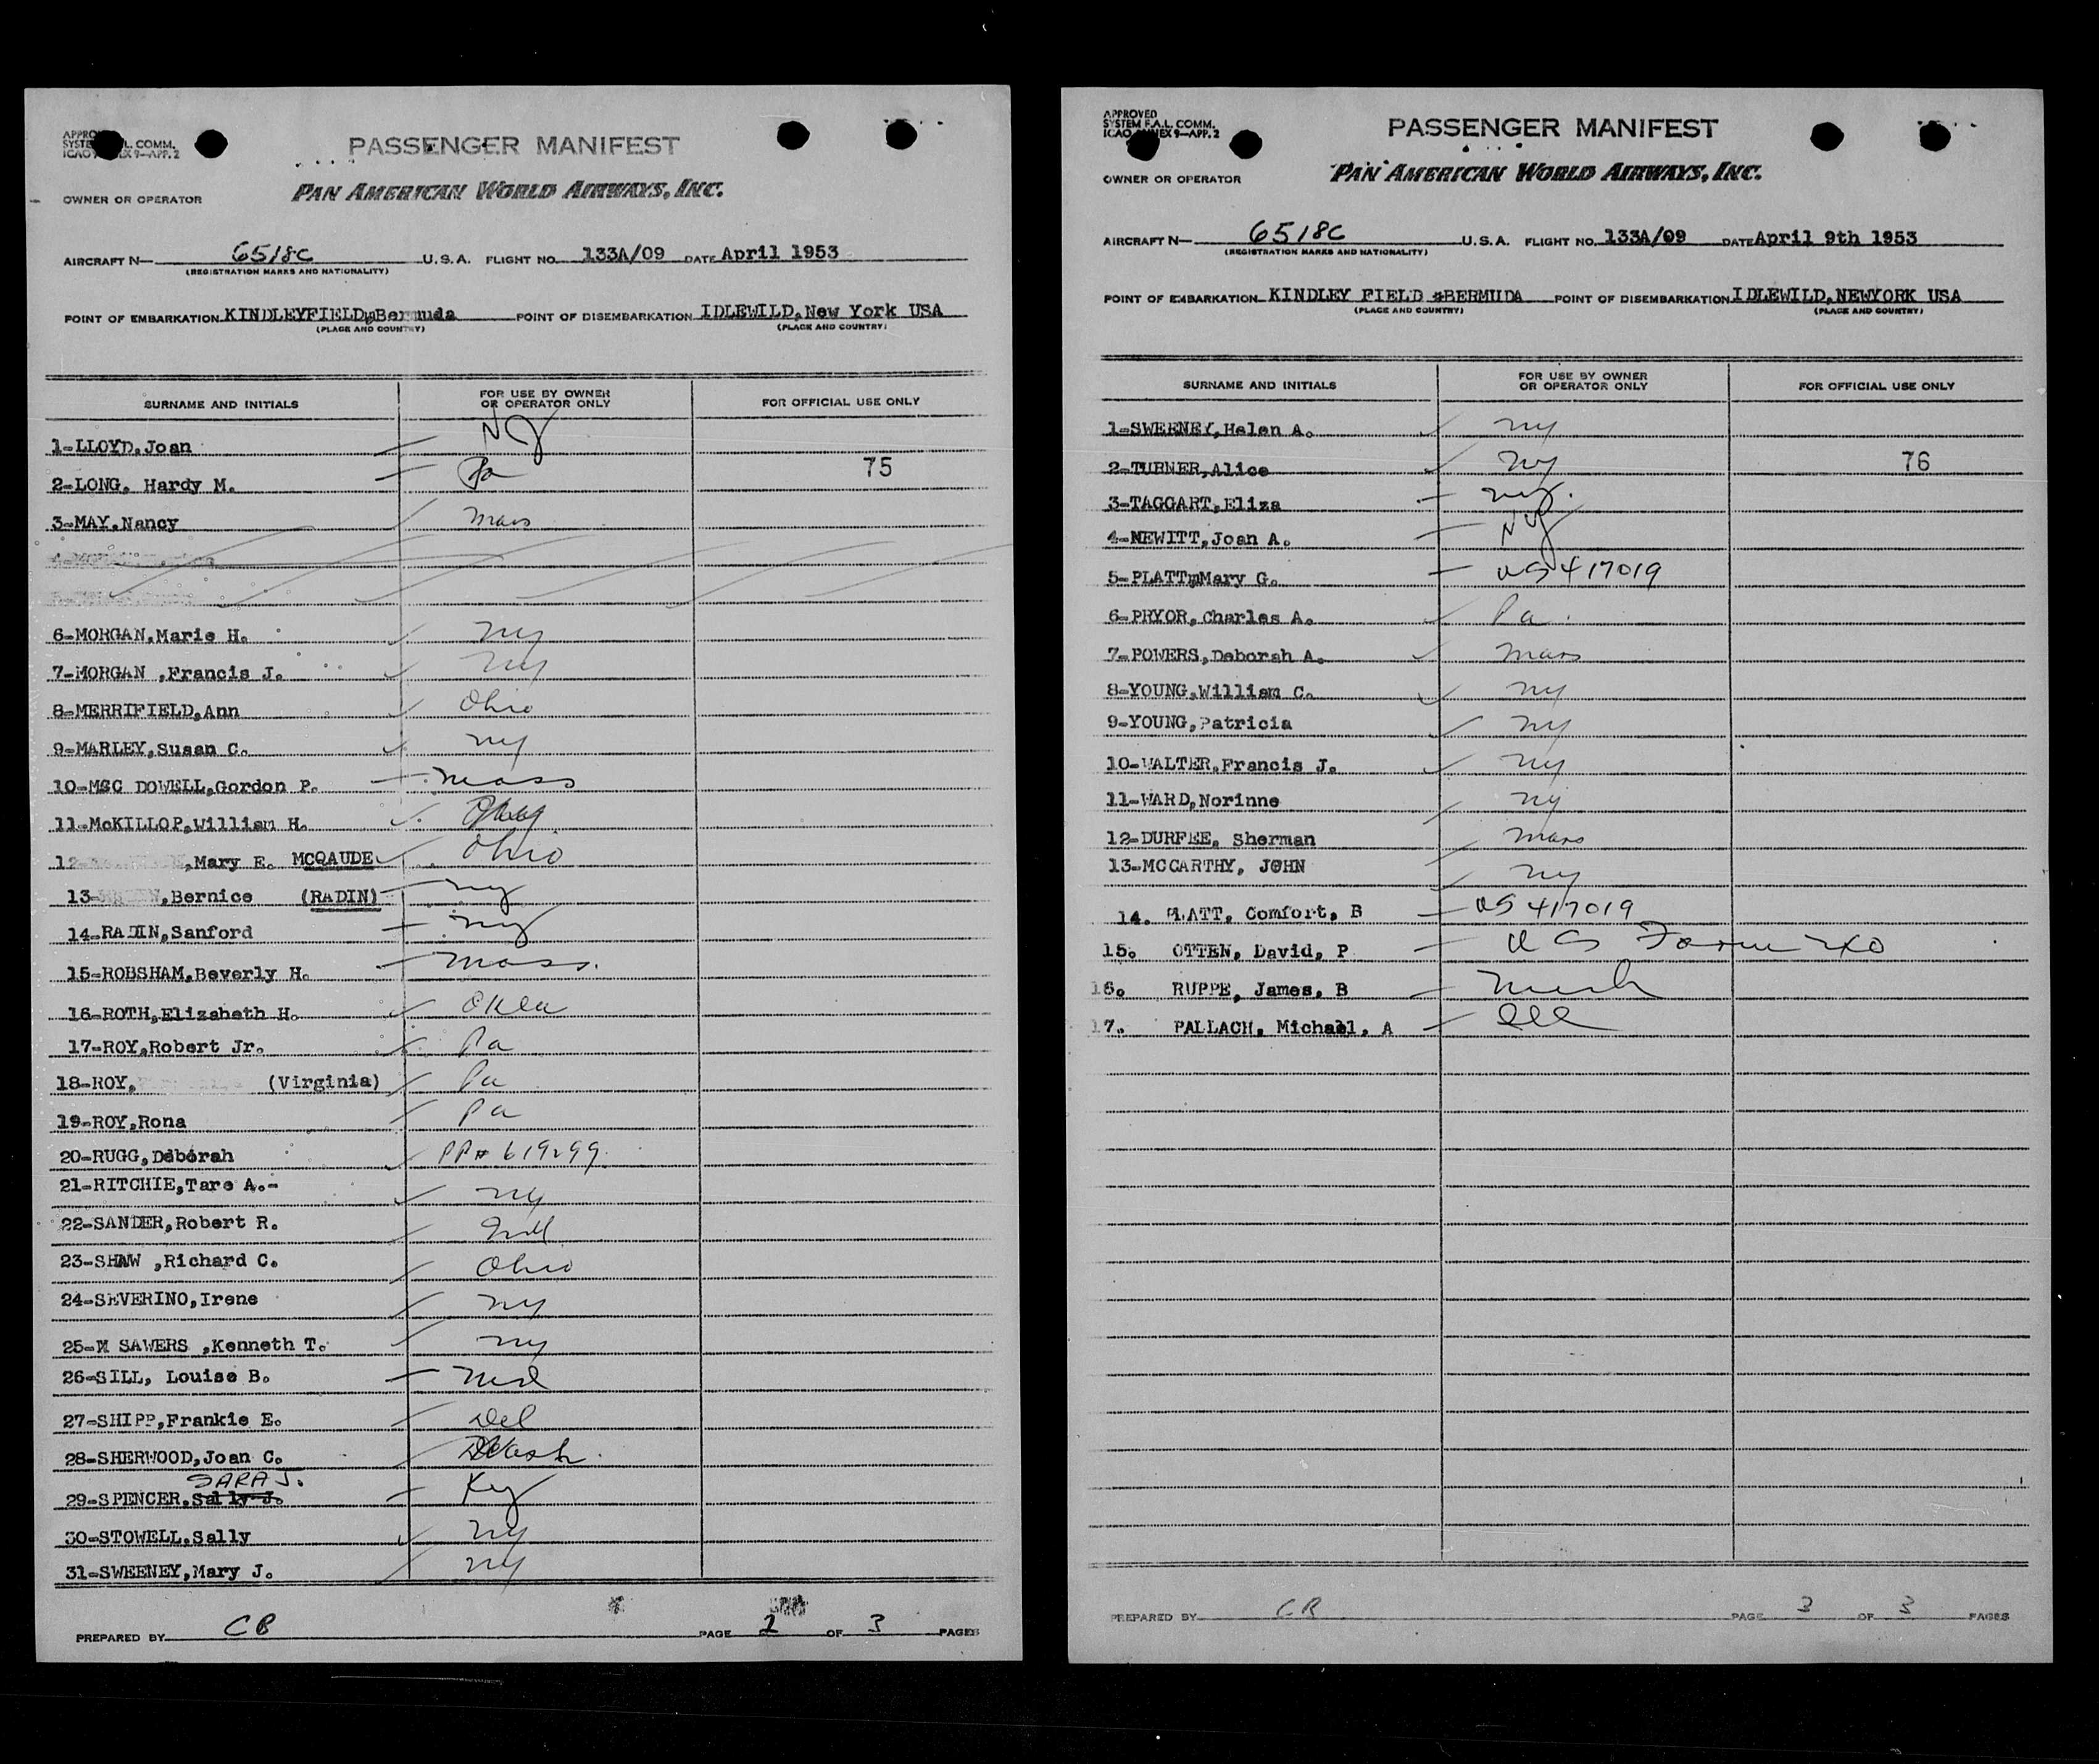 APPRO L. COMM.
SYSTE
ICAO EX 9—APP. 2
PASSENGER MANIFEST
OWNER OR OPERATOR
PAN AMERICAN WORLD AIRWAYS, INC.
AIRCRAFT N— 6518C U.S.A. FLIGHT NO. 133A/09 DATE April 1953
(REGISTRATION MARKS AND NATIONALITY)
POINT OF EMBARKATION KINDLEYFIELD,Bermuda POINT OF DISEMBARKATION IDLEWILD,New York USA
(PLACE AND COUNTRY) (PLACE AND COUNTRY)
SURNAME AND INITIALS FOR USE BY OWNER OR OPERATOR ONLY FOR OFFICIAL USE ONLY
1-LLOYD,Joan NJ
2-LONG, Hardy M. Pa 75
3-MAY,Nancy Mass
6-MORGAN,Marie H. NY
7-MORGAN ,Francis J. NY
8-MERRIFIELD,Ann Ohio
9-MARLEY,Susan C. NY
10-MSC DOWELL,Gordon P. Mass
11-McKILLOP,William H.
12- ,Mary E. MCQAUDE Ohio
13- ,Bernice (RADIN) NY
14-RADIN,Sanford NY
15-ROBSHAM,Beverly H. Mass.
16-ROTH,Elizabeth H. Okla
17-ROY,Robert Jr. Pa
18-ROY, (Virginia) Pa
19-ROY,Rona Pa
20-RUGG,Deborah PP# 619299
21-RITCHIE,Tare A.- NY
22-SANDER,Robert R.
23-SHAW ,Richard C. Ohio
24-SEVERINO,Irene NY
25-M SAWERS ,Kenneth T. NY
26-SILL, Louise B. Md
27-SHIPP,Frankie E. Del
28-SHERWOOD,Joan C. Wash.
SARA J.
29-SPENCER,Sally J. Ky
30-STOWELL,Sally NY
31-SWEENEY,Mary J. NY
PREPARED BY CB PAGE 2 OF 3 PAGES
APPROVED
SYSTEM F.A.L. COMM.
ICAO ANNEX 9—APP. 2
PASSENGER MANIFEST
OWNER OR OPERATOR
PAN AMERICAN WORLD AIRWAYS, INC.
AIRCRAFT N— 6518C U.S.A. FLIGHT NO. 133A/09 DATE April 9th 1953
(REGISTRATION MARKS AND NATIONALITY)
POINT OF EMBARKATION KINDLEY FIELD BERMUDA POINT OF DISEMBARKATION IDLEWILD,NEWYORK USA
(PLACE AND COUNTRY) (PLACE AND COUNTRY)
SURNAME AND INITIALS FOR USE BY OWNER OR OPERATOR ONLY FOR OFFICIAL USE ONLY
1-SWEENEY,Helen A. NY
2-TURNER,Alice NY 76
3-TAGGART,Eliza NY.
4-NEWITT,Joan A. NY
5-PLATT,Mary G. US 417019
6-PRYOR,Charles A. Pa.
7-POWERS,Deborah A. Mass
8-YOUNG,William C. NY
9-YOUNG,Patricia NY
10-WALTER,Francis J. NY
11-WARD,Norinne NY
12-DURFEE, Sherman Mass
13-MCCARTHY, JOHN NY
14. PLATT, Comfort, B US 417019
15. OTTEN, David, P US Form
16. RUPPE, James, B Mich
17. PALLACH, Michael, A Ill
PREPARED BY CB PAGE 3 OF 3 PAGES